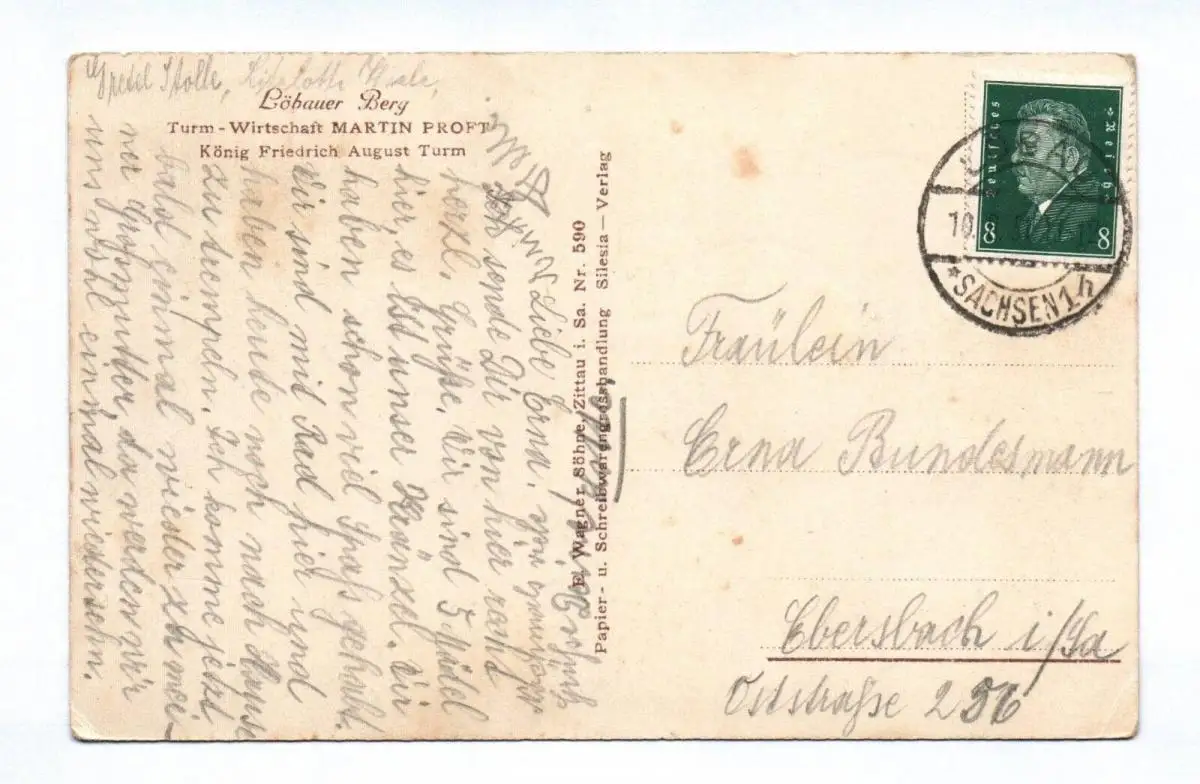 Gretel Stolle, Liselotte
Löbauer Berg
Turm-Wirtschaft MARTIN PROFT
König Friedrich August Turm
Liebe Erna.
Ich sende Dir von hier rechts
herzl. Grüße. Wir sind 5 Mädel
hier, es ist unser Kränzel. Wir
haben schon viel Spaß gehabt.
Wir sind mit Rad hier und
haben heute noch nach Hause
zu strempeln. Ich komme jetzt
bald einmal wieder zu mei-
ner Großmutter, da werden wir
uns wohl einmal wiedersehn.
E. Wagner Söhne, Zittau i. Sa. Nr. 590
Papier- u. Schreibwarengrosshandlung Silesia-Verlag
Deutsches Reich
8 8
10.
*SACHSEN 1 h
Fräulein
Erna Bundesmann
Ebersbach i/Sa
Oststraße 256